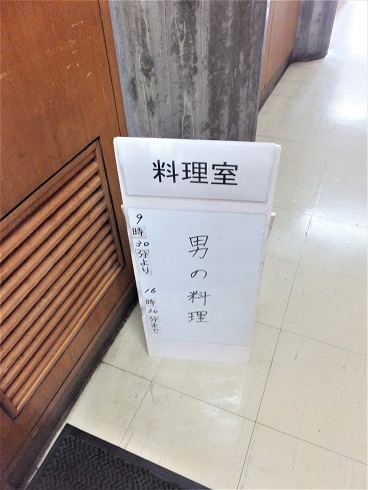 料理室
男の料理
9時30分より
16時30分まで